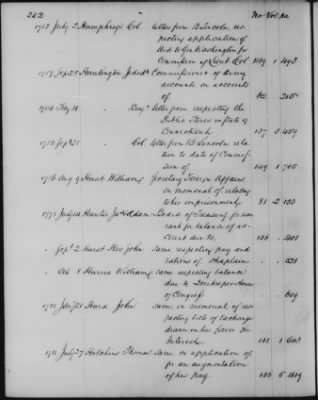 202 No Vol pa
1782 July 2 Humphreys Col letter from B Lincoln, re
specting application of
Aid to Gn Washington for
Commission of Lieut Col 149 1 493
Sep 25 Huntington Jedediah Commissioner of Army
accounts on accounts
of 62 215
May 11 " Benj letter from respecting the
Public Stores in State of
Connecticut 137 3 459
Sep 21 " Col letter from B Lincoln rela
tive to date of Commis
sion of 149 1 705
1786 Aug 9 Hurst William Secretary Foreign Affairs
on memorial of relating
to his imprisonment 81 2 133
July 14 Board of Treasury for war
rant for balance of ac
count due to 136
Sep 2 Hurst Rev John same respecting pay and
rations of Chaplain
Oct 8 William same respecting balance
due to Doorkeeper House
of Congress
Hurd John same on memorial of re
specting bills of Exchange
drawn in her favor for
Interest 138 1
July 7 Hutchins Thomas Same on application of
for an augmentation
of his pay 136 5